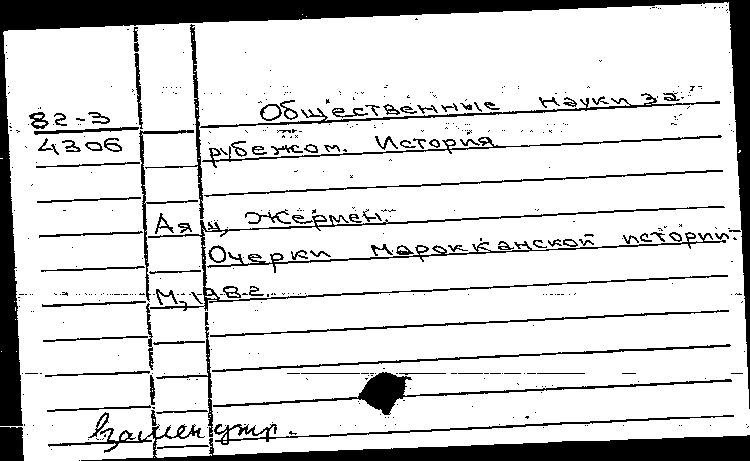 82-3
4306
Общественные науки за
рубежом. История
Аяш, Жермен.
Очерки марокканской истории.-
М, 1982.
Взамен утр.